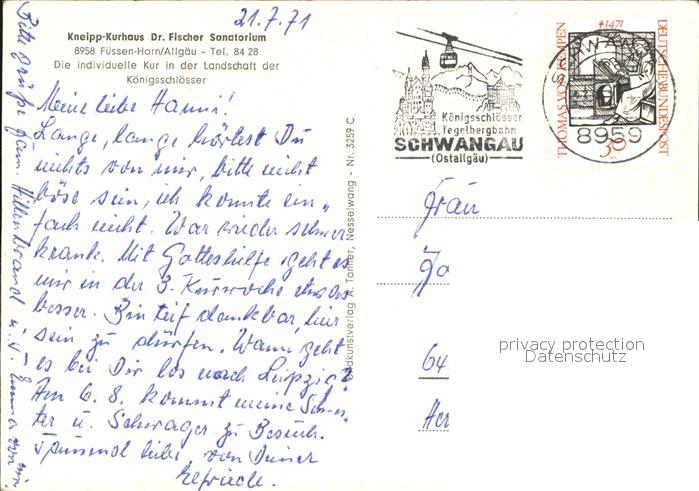 21.7.71
Kneipp-Kurhaus Dr. Fischer Sanatorium
8958 Füssen-Horn/Allgäu - Tel. 84 28
Die individuelle Kur in der Landschaft der
Königsschlösser
Meine liebe Hanni!
Lange, lange hörtest Du
nichts von mir, bitte nicht
böse sein, ich konnte ein„
fach nicht. War wieder schwer
krank. Mit Gotteshilfe geht es
mir in der 3. Kurwoche etwas
besser. Bin tief dankbar, hier
sein zu dürfen. Wann geht
es bei Dir los nach Leipzig?
Am 6. 8. kommt meine Schwes„
ter u. Schwager zu Besuch.
Tausend liebe, von Deiner
Elfriede.
Bitte grüße Fam. Hillenbrand u. T. Emma von mir
Bildkunstverlag A. Tanner, Nesselwang - Nr. 3259 C
Königsschlösser
Tegelbergbahn
SCHWANGAU
(Ostallgäu)
THOMAS VON KEMPEN
†1471
DEUTSCHE BUNDESPOST
30
SCHWANGAU
8959
Frau
64
privacy protection
Datenschutz